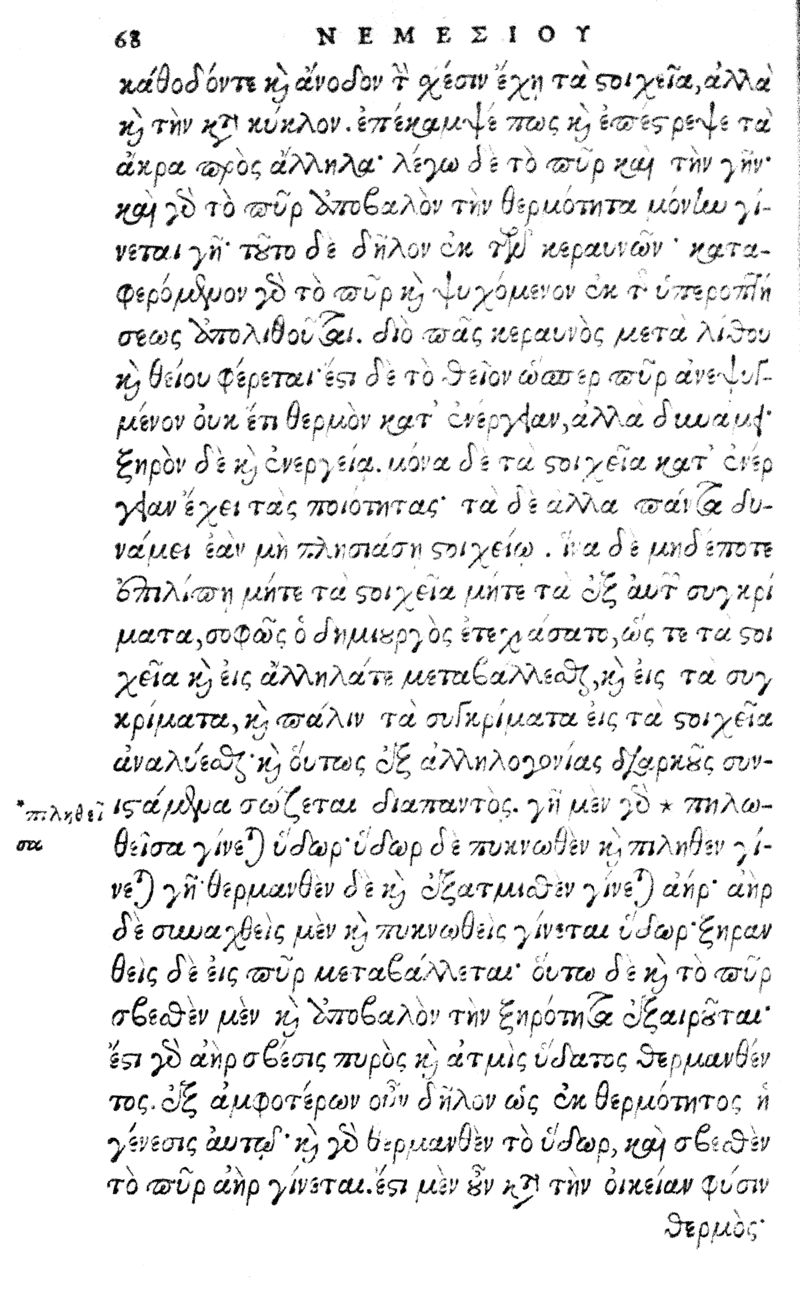 68 ΝΕΜΕΣΙΟΥ
κάθοδόντε καὶ ἄνοδον τὴν σχέσιν ἔχῃ τὰ στοιχεῖα, ἀλλὰ
καὶ τὴν κατὰ κύκλον. ἐπέκαμψέ πως καὶ ἐπέστρεψε τὰ
ἄκρα πρὸς ἄλληλα· λέγω δὲ τὸ πῦρ καὶ τὴν γῆν·
καὶ γὰρ τὸ πῦρ ἀποβαλὸν τὴν θερμότητα μόνην γί-
νεται γῆ· τοῦτο δὲ δῆλον ἐκ τῶν κεραυνῶν· κατα-
φερόμενον γὰρ τὸ πῦρ καὶ ψυχόμενον ἐκ τῆς ὑπεροπτή
σεως ἀπολιθοῦται. διὸ πᾶς κεραυνὸς μετὰ λίθου
καὶ θείου φέρεται· ἔστι δὲ τὸ θεῖον ὥσπερ πῦρ ἀνεψυγ-
μένον οὐκ ἔτι θερμὸν κατ' ἐνέργειαν, ἀλλὰ δυνάμει·
ξηρὸν δὲ καὶ ἐνεργείᾳ. μόνα δὲ τὰ στοιχεῖα κατ' ἐνέρ
γειαν ἔχει τὰς ποιότητας· τὰ δὲ ἄλλα πάντα δυ-
νάμει ἐὰν μὴ πλησιάσῃ στοιχείῳ. ἵνα δὲ μηδέποτε
ἐπιλίπῃ μήτε τὰ στοιχεῖα μήτε τὰ ἐξ αὐτῶν συγκρί
ματα, σοφῶς ὁ δημιουργὸς ἐτεχνάσατο, ὥς τε τὰ στοι
χεῖα καὶ εἰς ἄλληλάτε μεταβάλλεσθαι, καὶ εἰς τὰ συγ
κρίματα, καὶ πάλιν τὰ συγκρίματα εἰς τὰ στοιχεῖα
ἀναλύεσθαι· καὶ οὕτως ἐξ ἀλληλογονίας διαρκοῦς συν-
ιστάμενα σώζεται διαπαντός. γῆ μὲν γὰρ * πηλω-
*πιληθεῖ
σα
θεῖσα γίνεται ὕδωρ· ὕδωρ δὲ πυκνωθὲν καὶ πιληθὲν γί-
νεται γῆ· θερμανθὲν δὲ καὶ ἐξατμισθὲν γίνεται ἀήρ· ἀὴρ
δὲ συναχθεὶς μὲν καὶ πυκνωθεὶς γίνεται ὕδωρ· ξηραν
θεὶς δὲ εἰς πῦρ μεταβάλλεται· οὕτω δὲ καὶ τὸ πῦρ
σβεσθὲν μὲν καὶ ἀποβαλὸν τὴν ξηρότητα ἐξαιροῦται·
ἔστι γὰρ ἀὴρ σβέσις πυρὸς καὶ ἀτμὶς ὕδατος θερμανθέν
τος. ἐξ ἀμφοτέρων οὖν δῆλον ὡς ἐκ θερμότητος ἡ
γένεσις αὐτῷ· καὶ γὰρ θερμανθὲν τὸ ὕδωρ, καὶ σβεσθὲν
τὸ πῦρ ἀὴρ γίνεται. ἔστι μὲν οὖν κατὰ τὴν οἰκείαν φύσιν
θερμὸς·